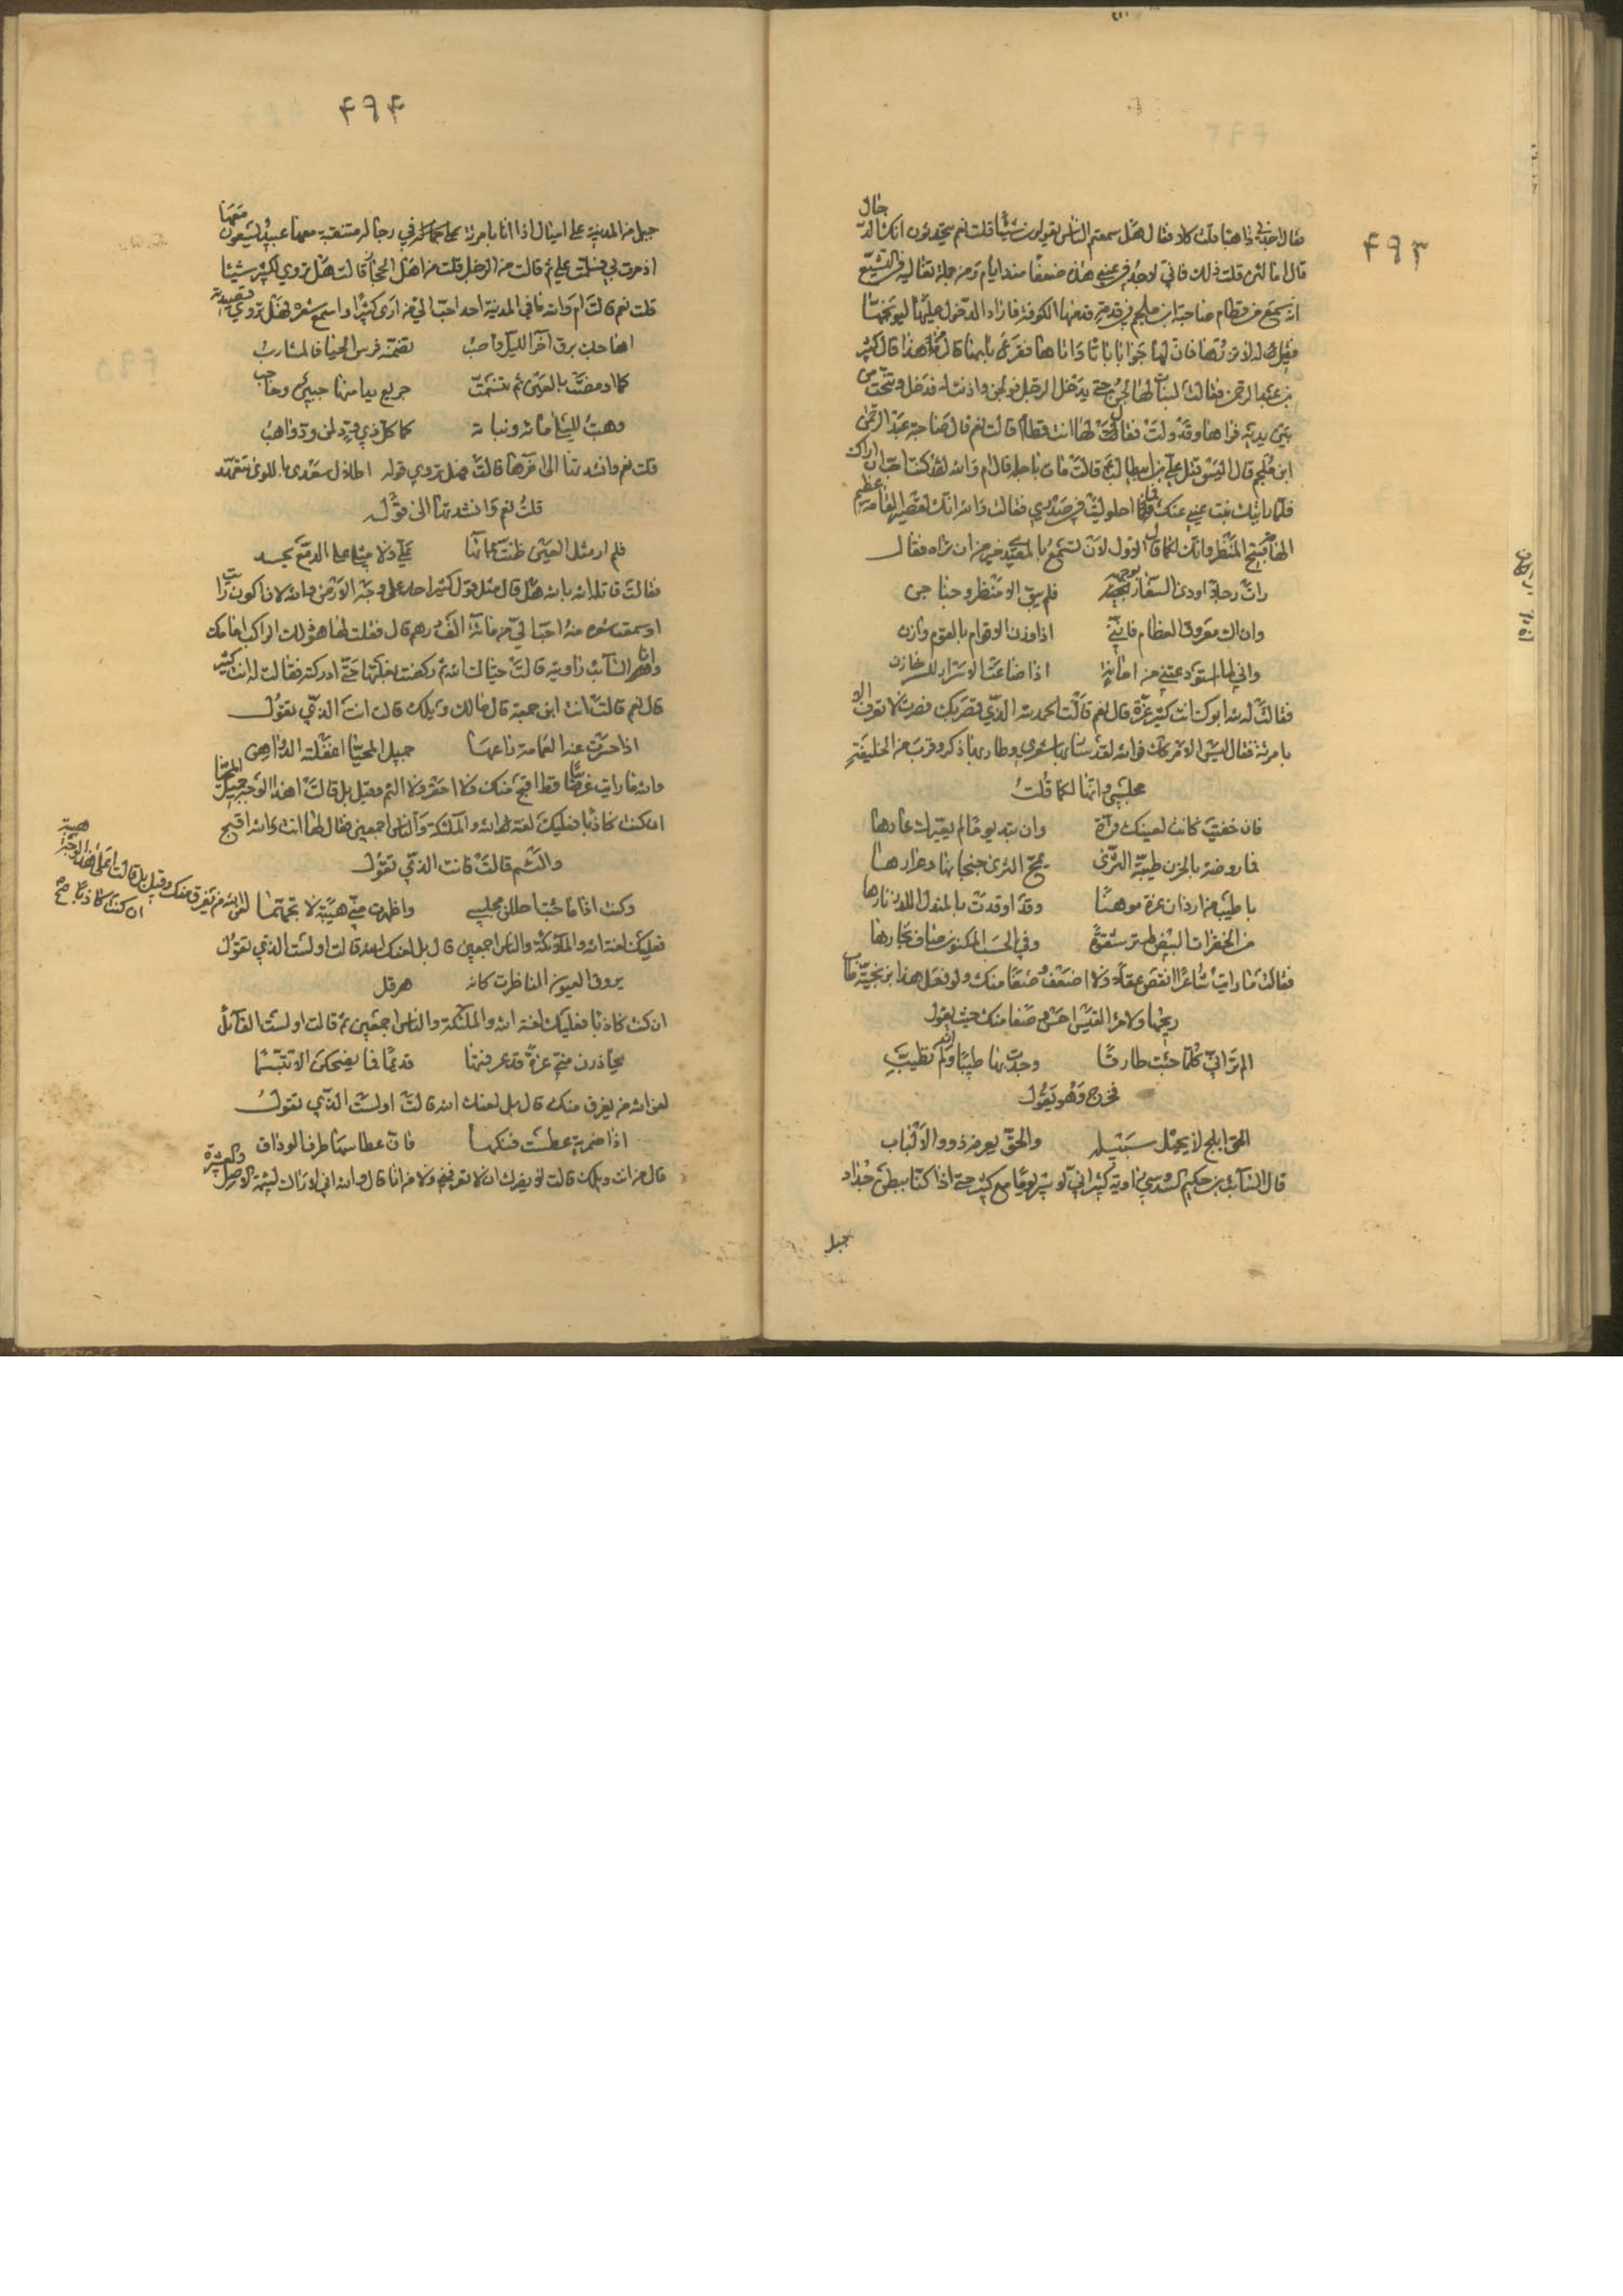 ۴۹۳
فقال اخذني ذاهبا قلت كلا فقال هل سمعتم الناس يقولون شيئا قلت نعم يتحدثون انك الدجال
قال اما لئن قلت ذلك فاني لاجد في عيني هذه ضعفا منذ ايام ومن جملة تغاليه في التشيع
انه سمع من قطام صاحبة ابن ملجم في قدمة قدمها الكوفة فاراد الدخول عليها ليوبخها
فقيل له لا تردها فان لها جوابا فابى واتاها فقرع بابها قال من هذا قال كثير
بن عبد الرحمن فقالت لبنات لها لجن حتى يدخل الرجل فولجن واذنت له فدخل وتنحت من
بين يديه فراها وقد ولت فقال لها انت قطام قالت نعم قال صاحبة عبد الرحمن
ابن ملجم قال اليس قتل علي بن ابي طالب قالت مات باجله قال ام والله لقد كنت احب ان اراك
فلما رايتك نبت عيني عنك فما احلوليت في صدري فقالت والله انك لقصير القامة عظيم
الهامة قبيح المنظر وانك لكما قال الاول لان تسمع بالمعيدي خير من ان تراه فقال
رات رجلا اودى السفار بوجهه      فلم يبق الا منظر وجناجن
وان اك معروق العظام فانني      اذا وزن الاقوام بالقوم وازن
واني لما استودعتني من امانة      اذا ضاعت الاسرار للسر خازن
فقالت لله ابوك انت كثير عزة قال نعم قالت الحمد لله الذي قصر بك فصرت لا تعرف الا
بامرئة فقال ليس الامر كذلك فوالله لقد سار بها شعري وطار بها ذكري وقرب من الخليفة
مجلسي وانها لكما قلت
فان خفيت كانت لعينك قرة      وان تبد يوما لم يعممك عارها
فما روضة بالحزن طيبة الثرى      يمج الثرى جثجاثها وعرارها
باطيب من اردان عزة موهنا      وقد اوقدت بالمندل اللدن نارها
من الخفرات البيض لم تر شقوة      وفي الحسب المكنون صاف نجارها
فقالت ما رايت شاعرا انقص عقلا ولا اضعف وصفا منك ولو فعل هذا بزنجية طاب
ريحها ولامرؤ القيس احسن وصفا منك حيث يقول
الم ترَ اني كلما جئت طارقا      وجدت بها طيبا وان لم تطيب
فخرج وهو يقول
الحق ابلج لا يخيل سبيله      والحق يعرفه ذووا الالباب
قال السائب بن حكيم السدوسي راوية كثير اني لاسير يوما مع كثير حتى اذا كنا ببطن جدار
جبل
۴۹۴
جبل من المدينة على اميال اذا انا بامرئة في رجالة متنقبة معها عبيد يسعون معها
اذ مرت بي فسلمت علي ثم قالت من الرجل قلت من اهل الحجاز قالت هل تروي لكثير شيئا
قلت نعم قالت ام والله ما في المدينة احد احب الي من ارى كثيرا واسمع شعره فهل تروي قصيدته
اهاجك برق آخر الليل واصب      تضمنه فرس الحيا فالمسارب
كما اومضت بالعين ثم تبسمت      خريع بدا منها جبين وحاجب
وهبت لليلى ماءه ونباته      كما كل ذي ود لمن ود واهب
قلت نعم وانشدتها الى اخرها قالت فهل تروي قوله اطلال سعدى باللوى تتعهد
قلت نعم وانشدتها الى قوله
فلم ار مثل العين ظنت بمائها      علي ولا مثلي على الدمع يحسد
فقالت قاتله الله بالله هل قال مثل قول كثير احد على وجه الارض والله لان اكون رايت
او سمعت شعره منه احب الي من مائة الف درهم قال فقلت لها هو ذلك الراكب امامك
وانا السائب راويته قالت حياك الله ثم ركضت بغلتها حتى ادركته فقالت له انت كثير
قال نعم قالت انت ابن جمعة قال مالك ويلك قالت انت الذي تقول
اذا حسرت عنه العمامة راعها      جميل المحيا اغفلته الدواهن
والله ما رايت عربيا قط اقبح منك ولا احقر ولا الئم وقيل بل قالت اهذا الوجه جميل المحيا
ان كنت كاذبا فعليك لعنة الله والملئكة والناس اجمعين فقال لها انت والله اقبح
والئم قالت فانت الذي تقول
وكنت اذا ما جئت اجللن مجلسي      واظهرن مني هيبة لا تجهما
لعن الله من يفرق منك وقيل بل قالت اعلى هذا الوجه هيبة
ان كنت كاذبا صح
فعليك لعنة الله والملائكة والناس اجمعين قال بل لعنك الله قالت اولست الذي تقول
يروق العيون الناظرات كانه      هرقل
ان كنت كاذبا فعليك لعنة الله والملئكة والناس اجمعين ثم قالت اولست القائل
يحاذرن مني غيرة قد عرفنها      قديما فما يضحكن الا تبسما
لعن الله من يفرق منك قال بل لعنك الله قالت اولست الذي تقول
اذا ضمرية عطست فنكها      فان عطاسها طرف الوداق
قال من انت ويلك قالت لا يضرك ان لا تعرفني ولا من انا قال والله اني لاراك لئيمة الاصل والعشيرة